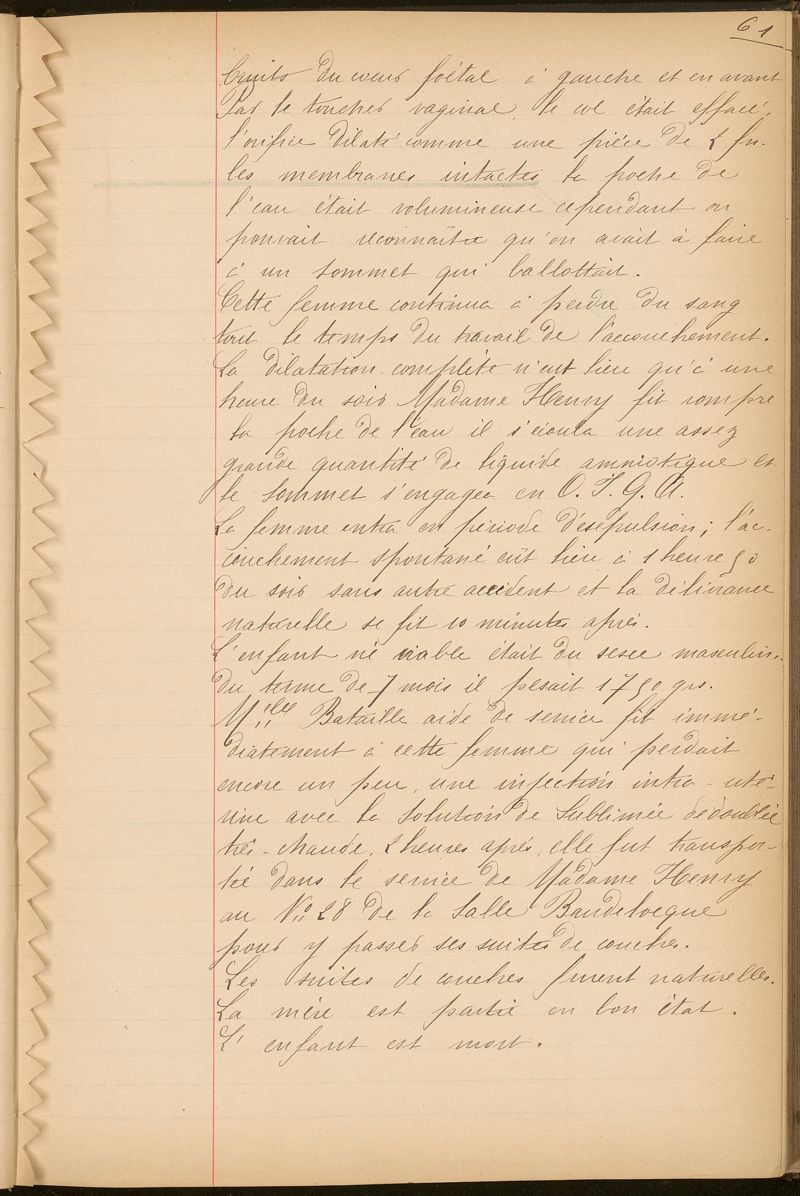 61
bruits du cœur fœtal à gauche et en avant
Par le toucher vaginal, le col était effacé,
l'orifice dilaté comme une pièce de 2 fr.
les membranes intactes la poche de
l'eau était volumineuse cependant on
pouvait reconnaître qu'on avait à faire
à un sommet qui ballottait.
Cette femme continua à perdre du sang
tout le temps du travail de l'accouchement.
La dilatation complète n'eut lieu qu'à une
heure du soir Madame Henry fit rompre
la poche de l'eau il s'écoula une assez
grande quantité de liquide amniotique et
le sommet s'engagea en O. I. G. A.
La femme entra en période d'expulsion; l'ac-
couchement spontané eût lieu à 1 heure 50
du soir sans autre accident et la délivrance
naturelle se fit 10 minutes après.
L'enfant né viable était du sexe masculin.
Du terme de 7 mois il pesait 1750 grs.
Melle Bataille aide de service fit immé-
diatement à cette femme qui perdait
encore un peu, une injection intra-uté-
rine avec la solution de Sublimée dédoublée
très-chaude. 2 heures après, elle fut transpor-
tée dans le service de Madame Henry
au No 28 de la Salle Baudelocque
pour y passer ses suites de couches.
Les suites de couches furent naturelles.
La mère est partie en bon état.
L'enfant est mort.